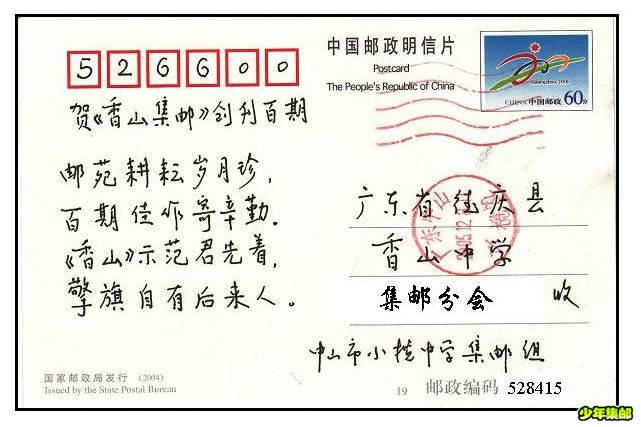 526600
中国邮政明信片
Postcard
The People's Republic of China
Guangzhou 2010
CHINA 中国邮政 60分
贺《香山集邮》创刊百期
邮苑耕耘岁月珍，
百期佳作寄辛勤。
《香山》示范君先着，
擎旗自有后来人。
广东省德庆县
香山中学
集邮分会 收
中山市小榄中学集邮组
国家邮政局发行 (2004)
Issued by the State Postal Bureau
19 邮政编码 528415
少年集邮